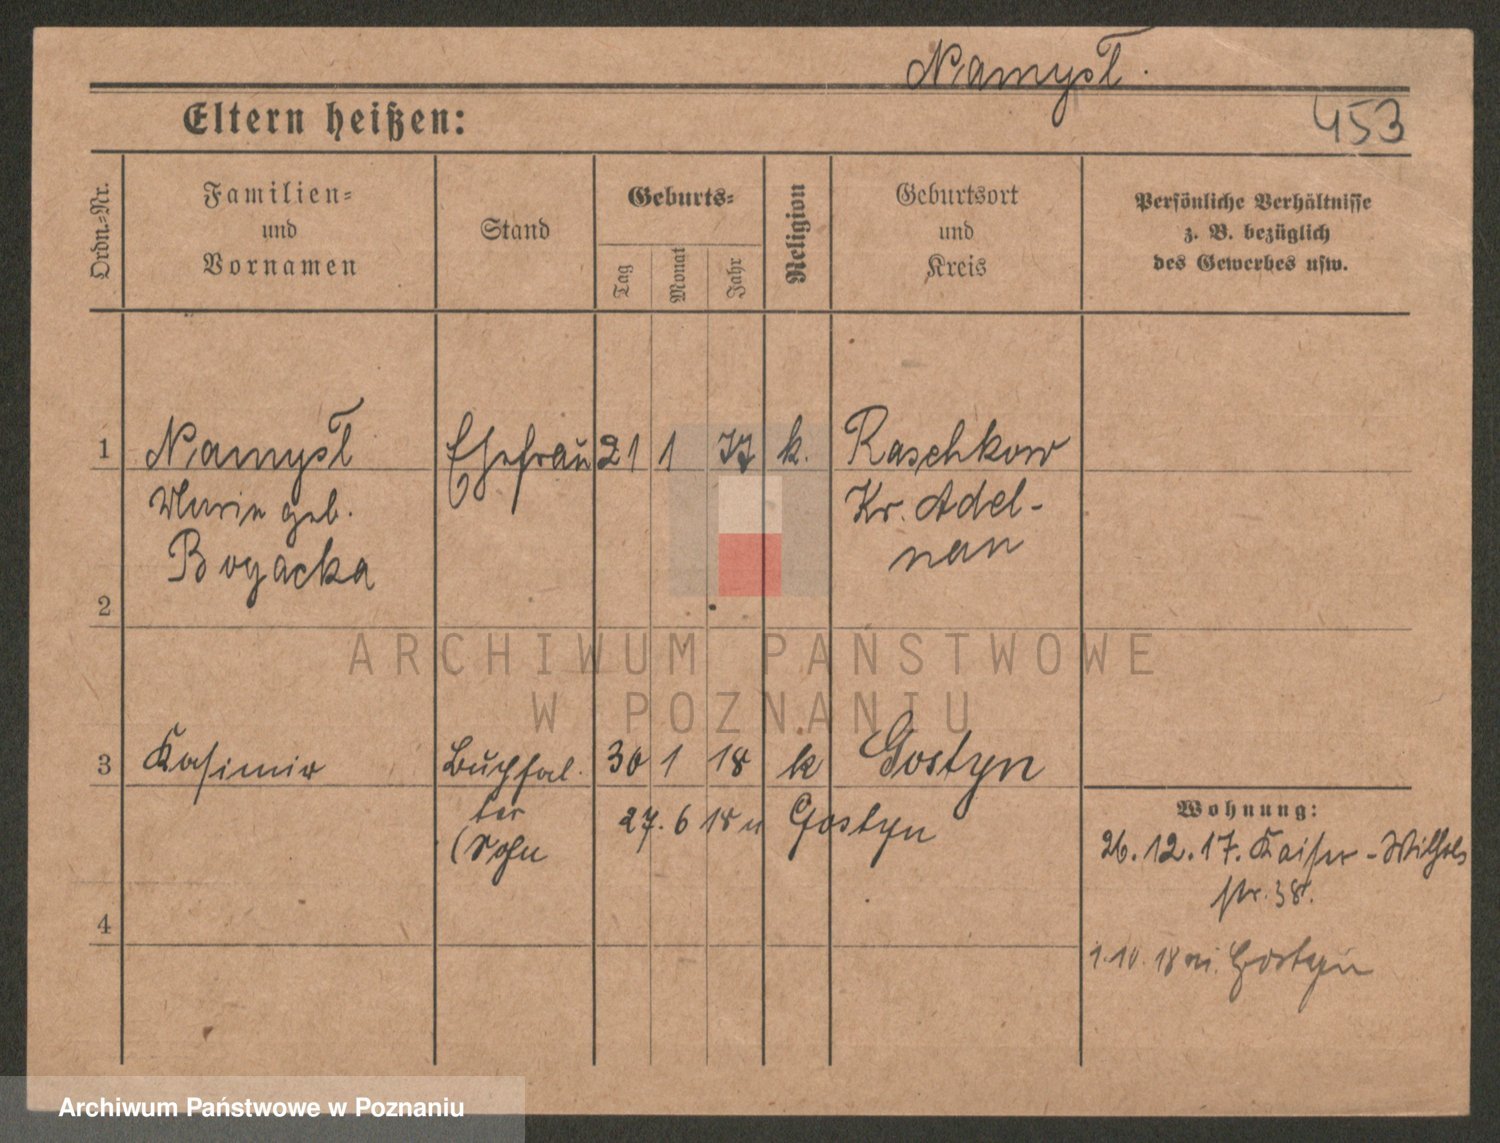 Namysł.
Eltern heißen:
453
Ordn.=Nr.
Familien=
und
Vornamen
Stand
Geburts=
Tag
Monat
Jahr
Religion
Geburtsort
und
Kreis
Persönliche Verhältnisse
z. B. bezüglich
des Gewerbes usw.
1 Namysł Ehefrau 21 1 k. Raschkow
Marie geb. Kr. Adel-
Bogacka nau
2
ARCHIWUM PAŃSTWOWE
W POZNANIU
3 Kasimir Buchhal- 30 1 18 k Gostyn
ter 27. 6 18 n Gostyn
(Sohn
Wohnung:
26. 12. 17. Kaiser-Wilhels
str. 38.
4
1. 10. 18 Gostyn
Archiwum Państwowe w Poznaniu